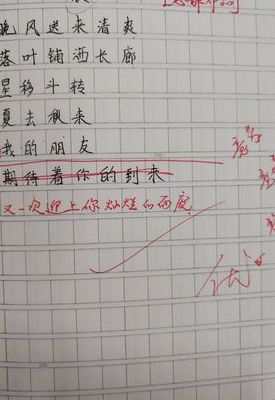 晚风送来清爽
落叶铺洒长廊
星移斗转
夏去秋来
我的朋友
期待着你的到来
又一次迎上你灿烂的面庞
优